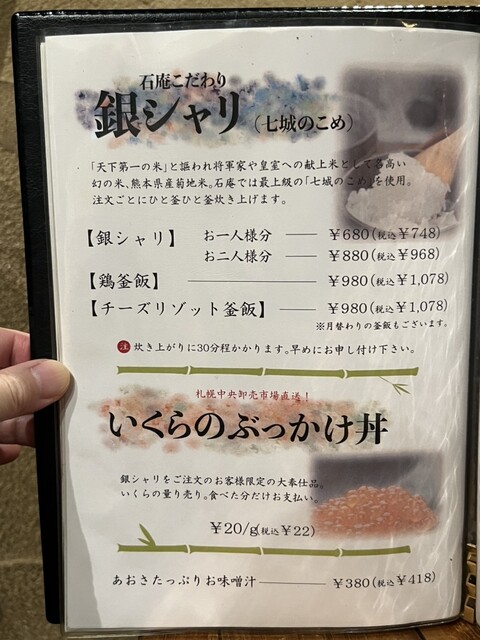 石庵こだわり
銀シャリ（七城のこめ）
「天下第一の米」と謳われ将軍家や皇室への献上米として名高い
幻の米、熊本県産菊池米。石庵では最上級の「七城のこめ」を使用。
注文ごとにひと釜ひと釜炊き上げます。
【銀シャリ】 お一人様分 ―― ￥680(税込￥748)
お二人様分 ―― ￥880(税込￥968)
【鶏釜飯】 ―――――― ￥980(税込￥1,078)
【チーズリゾット釜飯】 ―― ￥980(税込￥1,078)
※月替わりの釜飯もございます。
注 炊き上がりに30分程かかります。早めにお申し付け下さい。
札幌中央卸売市場直送！
いくらのぶっかけ丼
銀シャリをご注文のお客様限定の大奉仕品。
いくらの量り売り。食べた分だけお支払い。
￥20/g(税込￥22)
あおさたっぷりお味噌汁 ―――― ￥380(税込￥418)